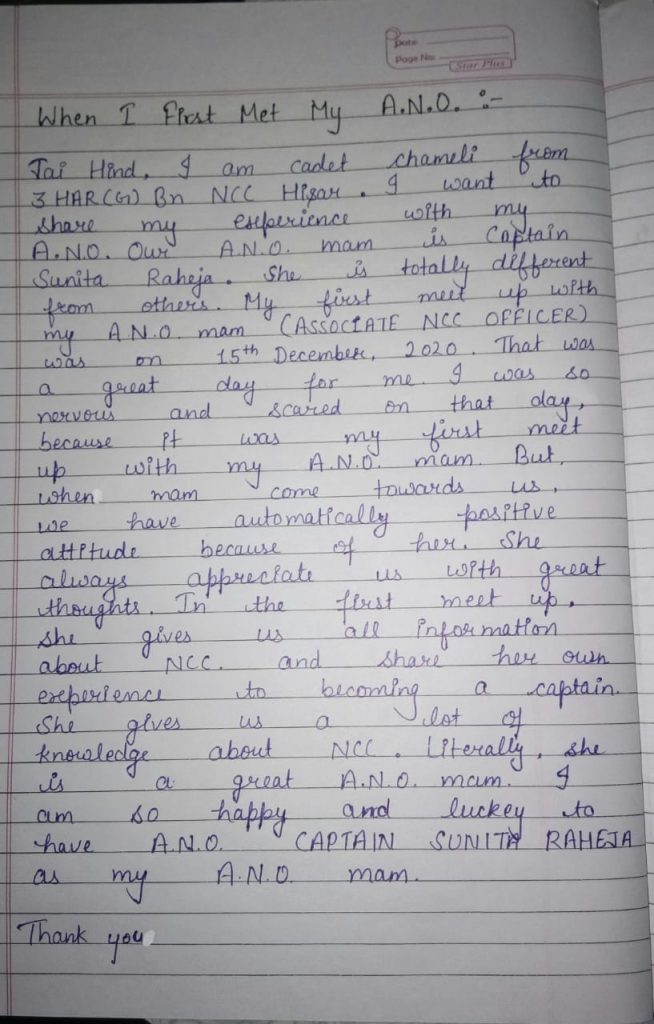 Date
Page No:
Star Plus
When I First Met My A.N.O. :-
Jai Hind, I am cadet chameli from
3 HAR(G) Bn NCC Hisar. I want to
share my experience with my
A.N.O. Our A.N.O. mam is Captain
Sunita Raheja. She is totally different
from others. My first meet up with
my A.N.O. mam (ASSOCIATE NCC OFFICER)
was on 15th December, 2020. That was
a great day for me. I was so
nervous and scared on that day,
because it was my first meet
up with my A.N.O. mam. But,
when mam come towards us,
we have automatically positive
attitude because of her. She
always appreciate us with great
thoughts. In the first meet up,
she gives us all information
about NCC. and share her own
experience to becoming a captain.
She gives us a lot of
knowledge about NCC. Literally, she
is a great A.N.O. mam. I
am so happy and luckey to
have A.N.O. CAPTAIN SUNITA RAHEJA
as my A.N.O. mam.
Thank you